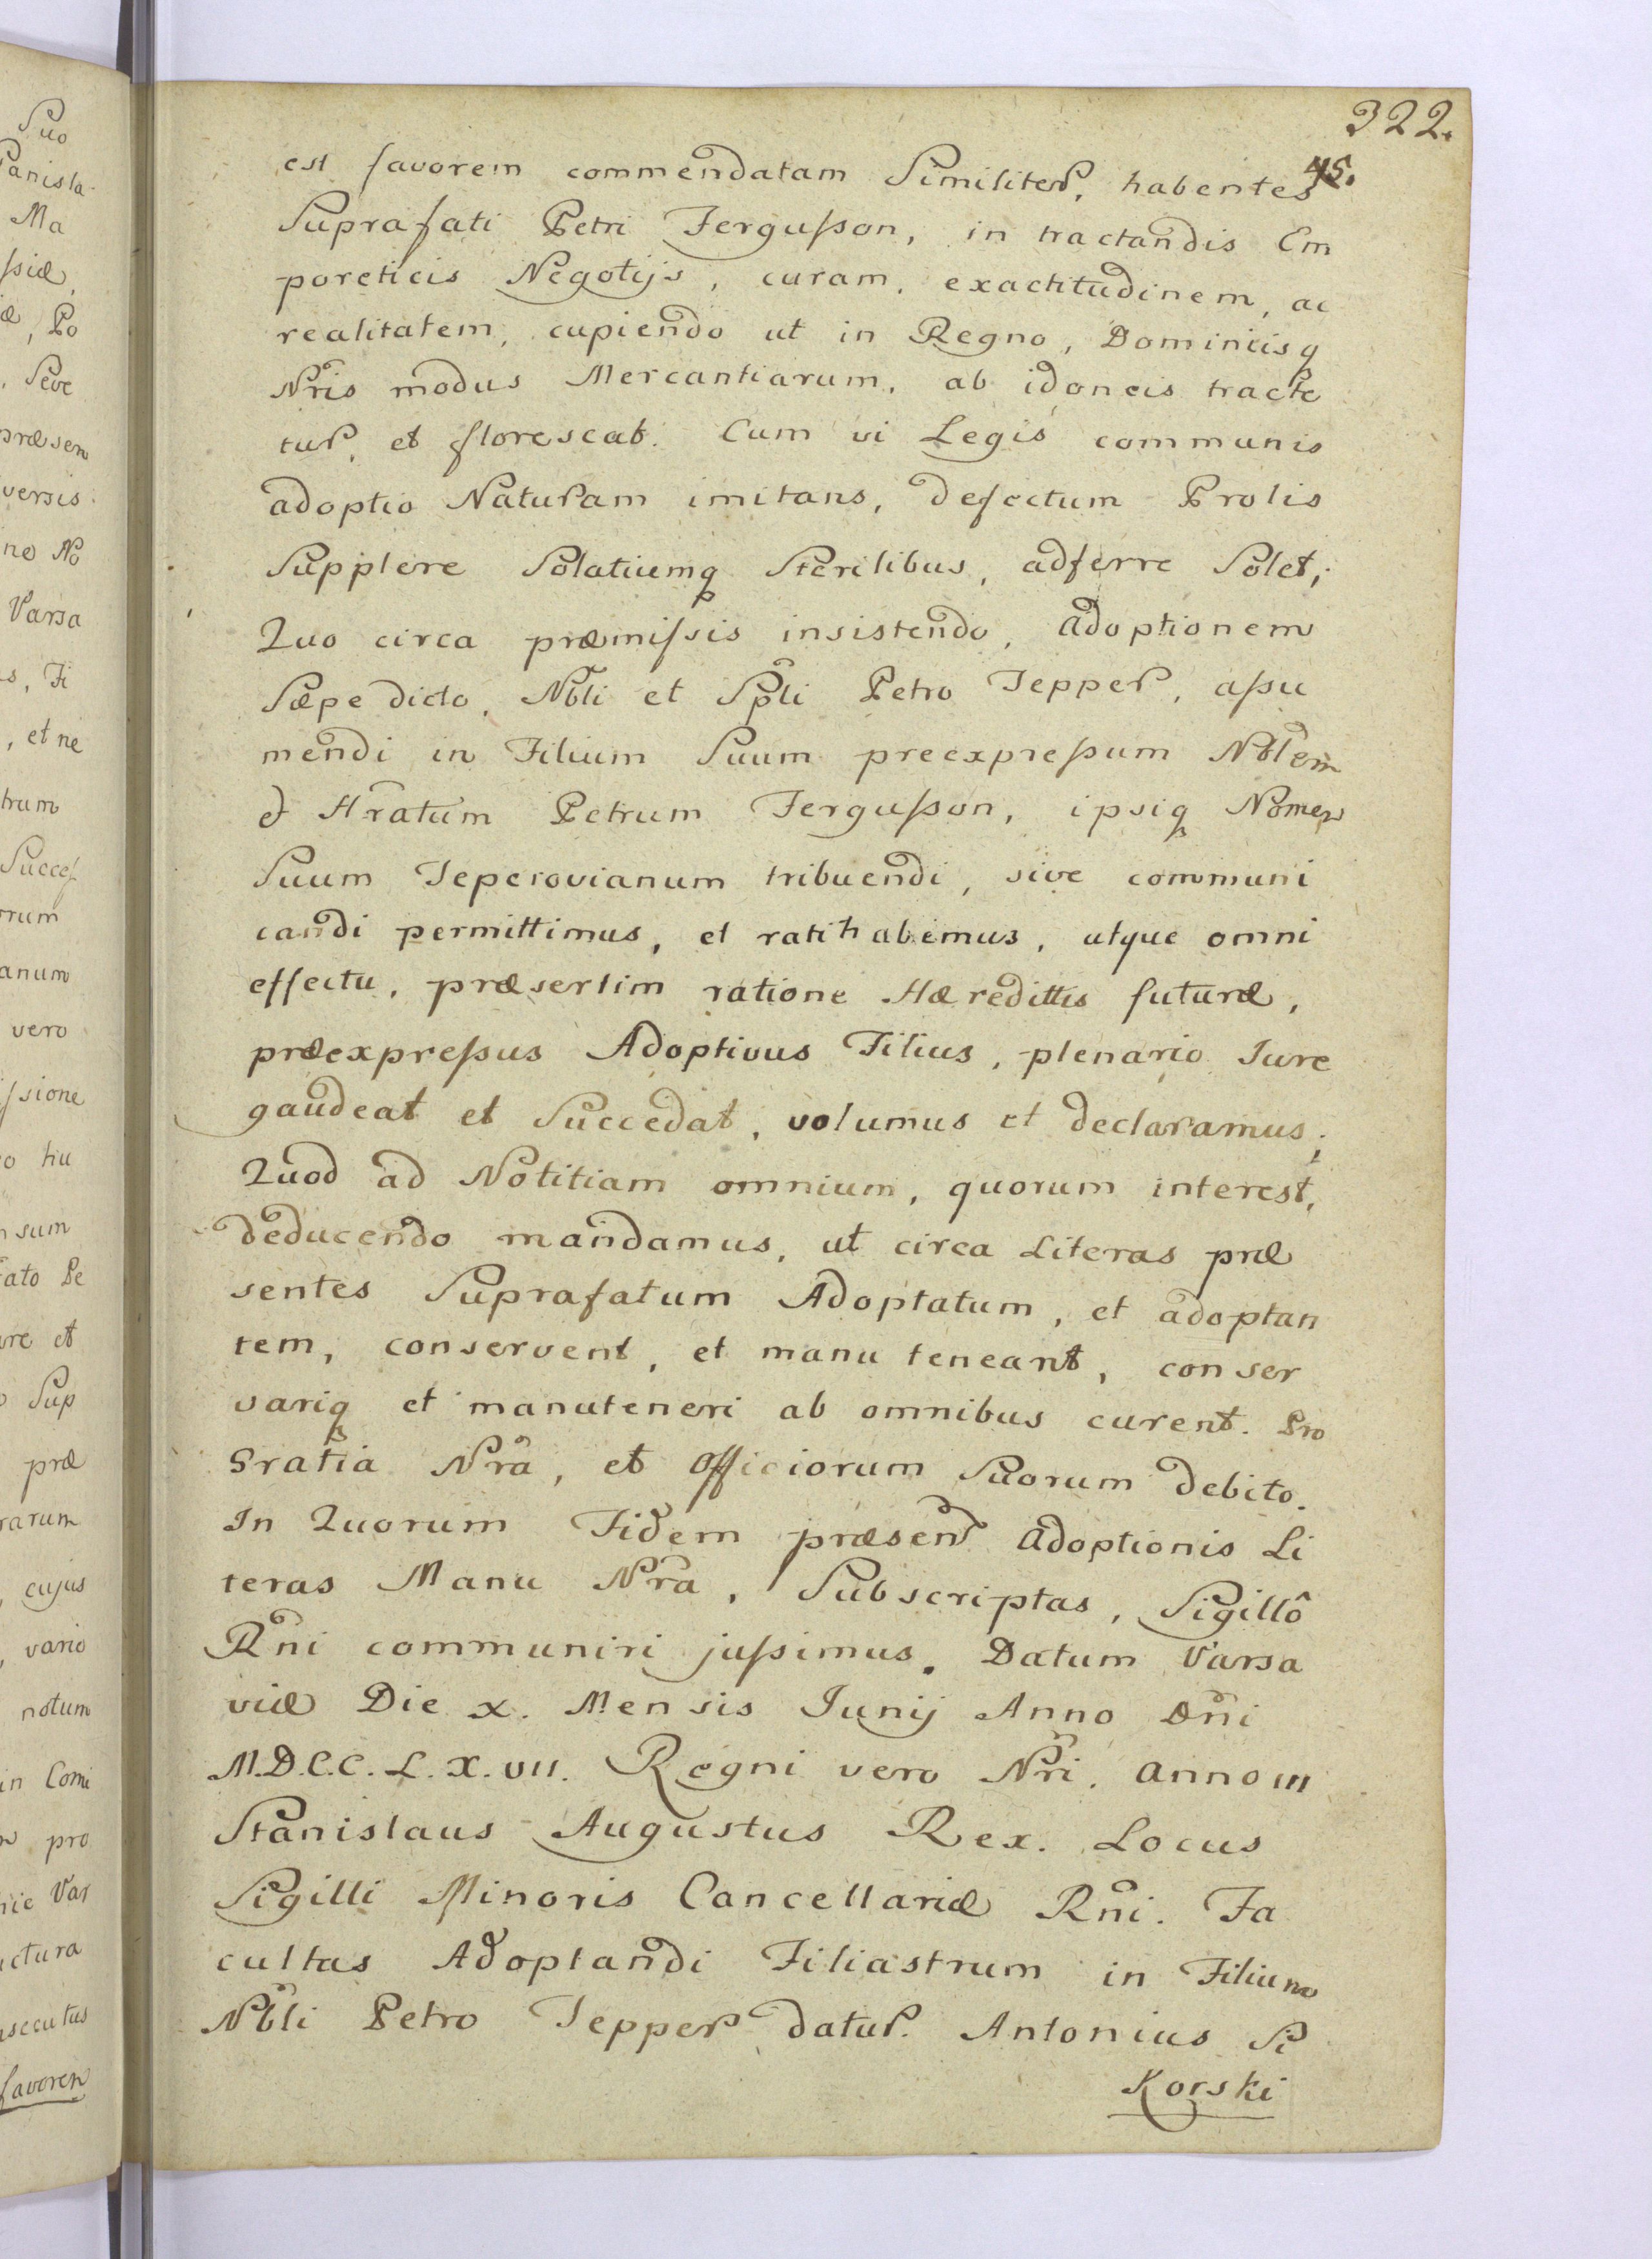 322.
45.
est favorem commendatam Similiter, habentes
Suprafati Petri Fergusson, in tractandis Em
poreticis Negotijs, curam, exactitudinem, ac
realitatem, cupiendo ut in Regno, Dominiisq
Nris modus Mercantiarum, ab idoneis tracte
tur, et florescat. Cum vi Legis communis
adoptio Naturam imitans, defectum Prolis
Supplere Solatiumq Sterilibus, adferre Solet;
Quo circa præmissis insistendo, Adoptionem
Sæpe dicto, Nbli et Spli Petro Tepper, assu
mendi in Filium Suum preexpressum Nblem
et Hratum Petrum Fergusson, ipsiq Nomen
Suum Teperovianum tribuendi, sive communi
candi permittimus, et ratihabemus, utque omni
effectu, præsertim ratione Hæredittis futuræ,
præexpressus Adoptivus Filius, plenario Iure
gaudeat et Succedat, volumus et declaramus;
Quod ad Notitiam omnium, quorum interest,
deducendo mandamus, ut circa Literas præ
sentes Suprafatum Adoptatum, et adoptan
tem, conservent, et manu teneant, conser
variq et manuteneri ab omnibus curent. Pro
Gratia Nra, et Officiorum Suorum debito.
In Quorum Fidem præsent Adoptionis Li
teras Manu Nra, Subscriptas, Sigillô
Rni communiri jussimus. Datum Varsa
viæ Die X. Mensis Junij Anno Dni
M.D.C.C.L.X.VII. Regni vero Nri. anno III
Stanislaus Augustus Rex. Locus
Sigilli Minoris Cancellariæ Rni. Fa
cultas Adoptandi Filiastrum in Filium
Nbli Petro Tepper datur. Antonius Si
Korski
Suo
Ma
Po
Seve
præsen
versis
ne No
Varsa
Fi
, et ne
trum
Succes
rrum
anum
vero
ssione
sum
ato Pe
et
Sup
præ
rarum
cujus
vario
notum
in Comi
pro
Var
ctura
secutus
favorem